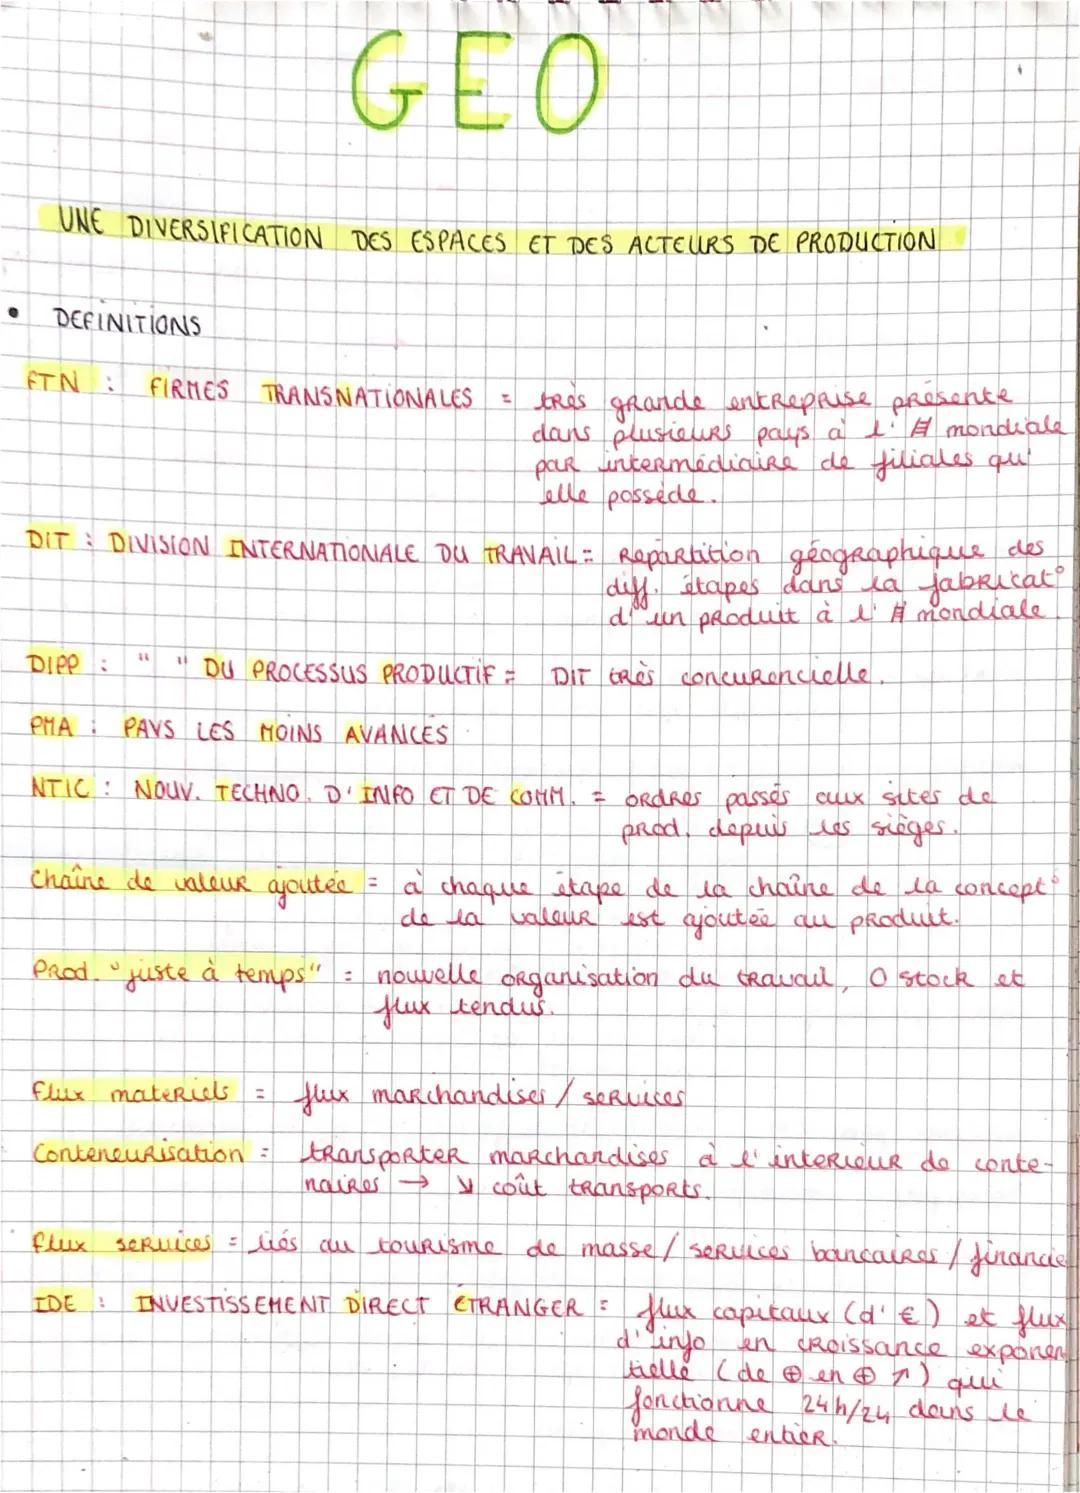 GEO
UNE DIVERSIFICATION DES ESPACES ET DES ACTEURS DE PRODUCTION
• DEFINITIONS
FTN : FIRMES TRANSNATIONALES = très grande entreprise présente
dans plusieurs pays à l' mondiale
par intermédiaire de filiales qu'
elle possède.
DIT : DIVISION INTERNATIONALE DU TRAVAIL = Répartition géographique des
diff. étapes dans la fabricat°
d'un produit à l' mondiale.
DIPP : " " DU PROCESSUS PRODUCTIF = DIT très concurencielle.
PMA : PAYS LES MOINS AVANCÉS
NTIC : NOUV. TECHNO. D'INFO ET DE COMM. = ordres passés aux sites de
prod. depuis les sièges.
Chaîne de valeur ajoutée = à chaque étape de la chaîne de la concept°
de la valeur est ajoutée au produit.
Prod. "juste à temps" = nouvelle organisation du travail, 0 stock et
flux tendus.
Flux materiels = flux marchandises / services
Conteneurisation = transporter marchandises à l'interieur de conte-
naires → ↘ coût transports.
Flux services = liés au tourisme de masse / services bancaires / financie
IDE : INVESTISSEMENT DIRECT ÉTRANGER = flux capitaux (d' €) et flux
d'info en croissance exponen
tielle (de ⊕ en ⊕ ↗) qui
fonctionne 24h/24 dans le
monde entier.